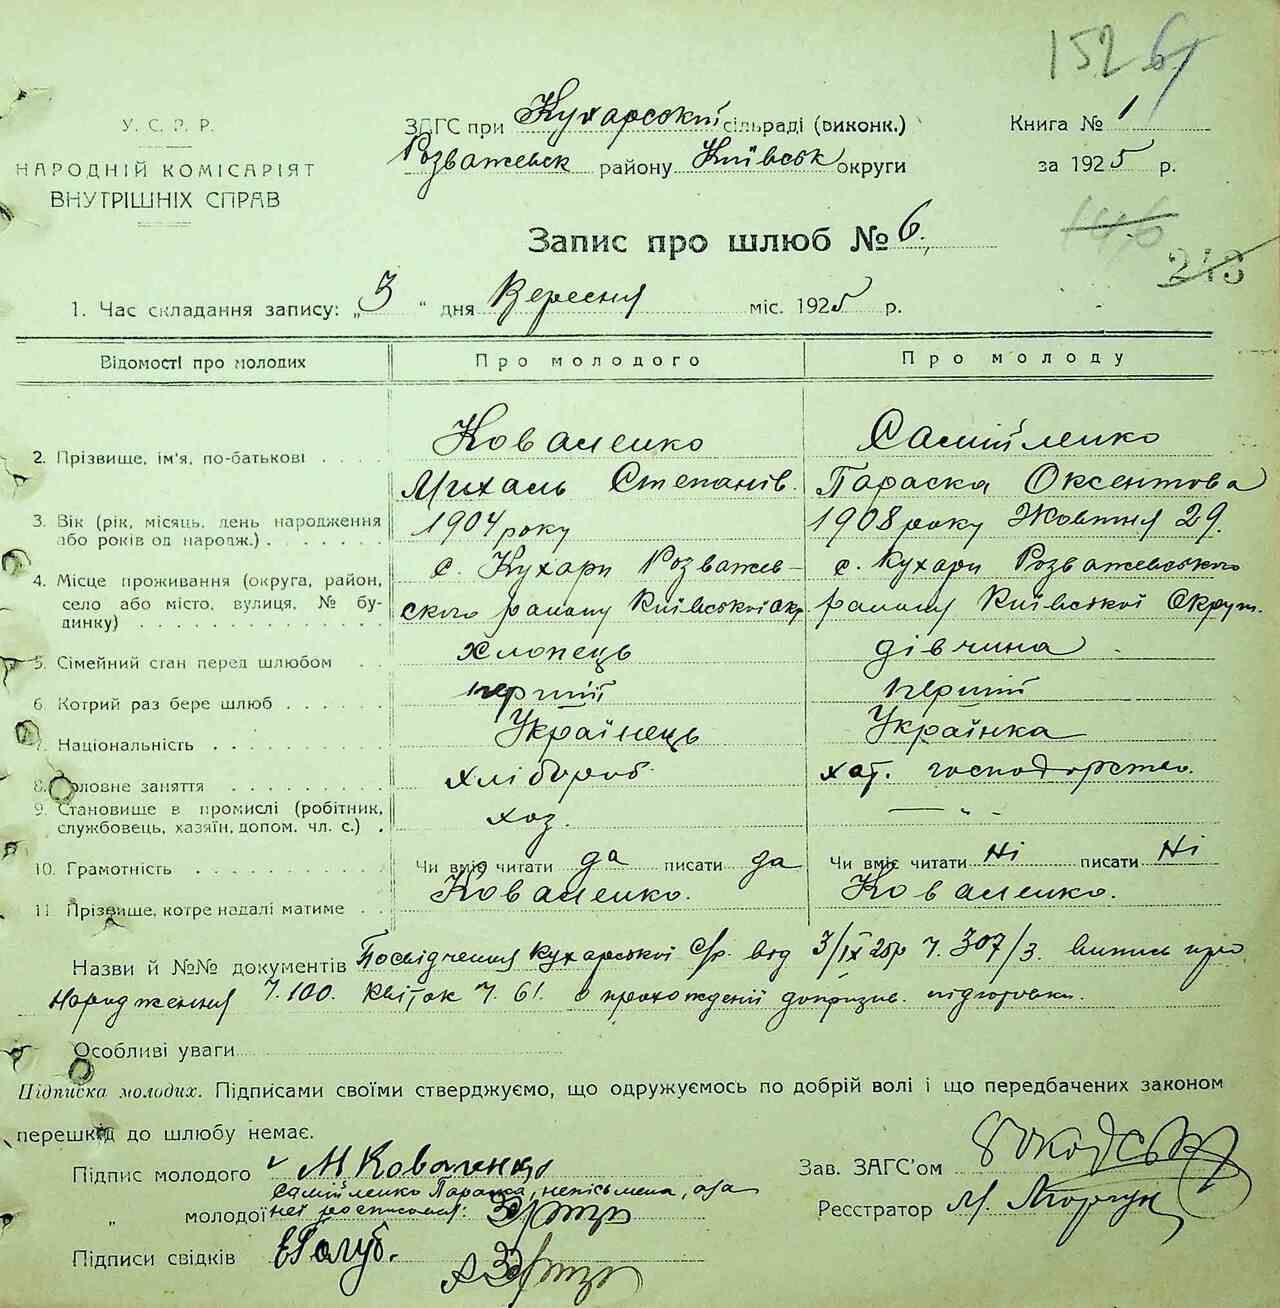 152
У. С. Р. Р.
НАРОДНІЙ КОМІСАРІЯТ
ВНУТРІШНІХ СПРАВ
ЗАГС при Кухарській сільраді (виконк.)
Розважевск району Київськ округи
Книга № 1
за 1925 р.
Запис про шлюб № 6.
146
213
1. Час складання запису: „3“ дня Вересня міс. 1925 р.
Відомості про молодих
Про молодого
Про молоду
2. Прізвище, ім'я, по-батькові
Коваленко
Михаль Степанів.
Самійленко
Параска Оксентова
3. Вік (рік, місяць, день народження
або років од народж.)
1904 року
1908 року Жовтня 29.
4. Місце проживання (округа, район,
село або місто, вулиця, № бу-
динку)
с. Кухари Розважев-
ского району Київської окр.
с. Кухари Розважевського
району Київської Округи.
5. Сімейний стан перед шлюбом
хлопець
дівчина
6. Котрий раз бере шлюб
перший
перший
7. Національність
Українець
Українка
8. Головне заняття
хлібороб
хат. господарство.
9. Становище в промислі (робітник,
службовець, хазяїн, допом. чл. с.)
хоз.
— „ -
10. Грамотність
Чи вміє читати да писати да
Чи вміє читати Ні писати Ні
11. Прізвище, котре надалі матиме
Коваленко.
Коваленко.
Назви й №№ документів Посвідчення Кухарської с/р. від 3/IX 25р Ч. 307/3. випись про
Народження Ч. 100. Квіток Ч. 61. о прохожденії допризив. підготовки.
Особливі уваги
Підписка молодих. Підписами своїми стверджуємо, що одружуємось по добрій волі і що передбачених законом
перешкід до шлюбу немає.
Підпис молодого М Коваленко
„ молодої Самійленко Параска, неписьмена, а за
неї росписался:
Підписи свідків ЕГолуб.
Зав. ЗАГС'ом
Ресстратор М.